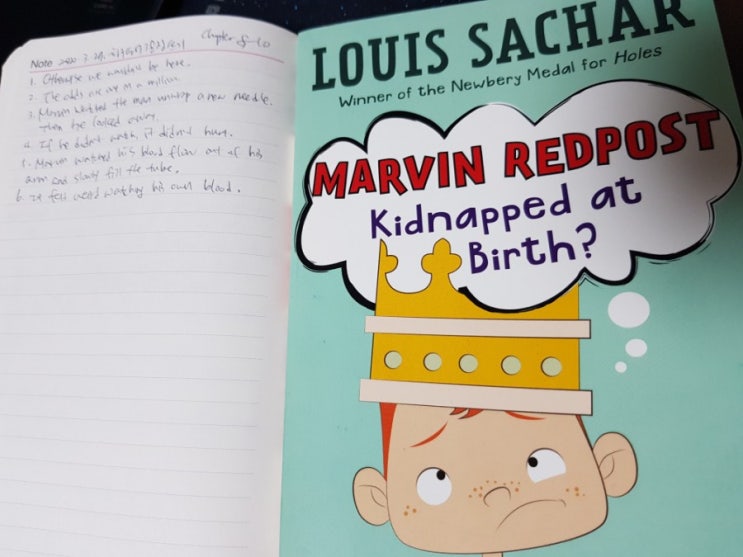 Note 2020. 3. 29.
Chapter 8-10
1. Otherwise we wouldn't be here.
2. The odds are one in a million.
3. Marvin watched the man unwrap a new needle.
Then he looked away.
4. If he didn't watch, it didn't hurt.
5. Marvin watched his blood flow out of his
arm and slowly fill the tube.
6. It felt weird watching his own blood.
LOUIS SACHAR
Winner of the Newbery Medal for Holes
MARVIN REDPOST
Kidnapped at
Birth?